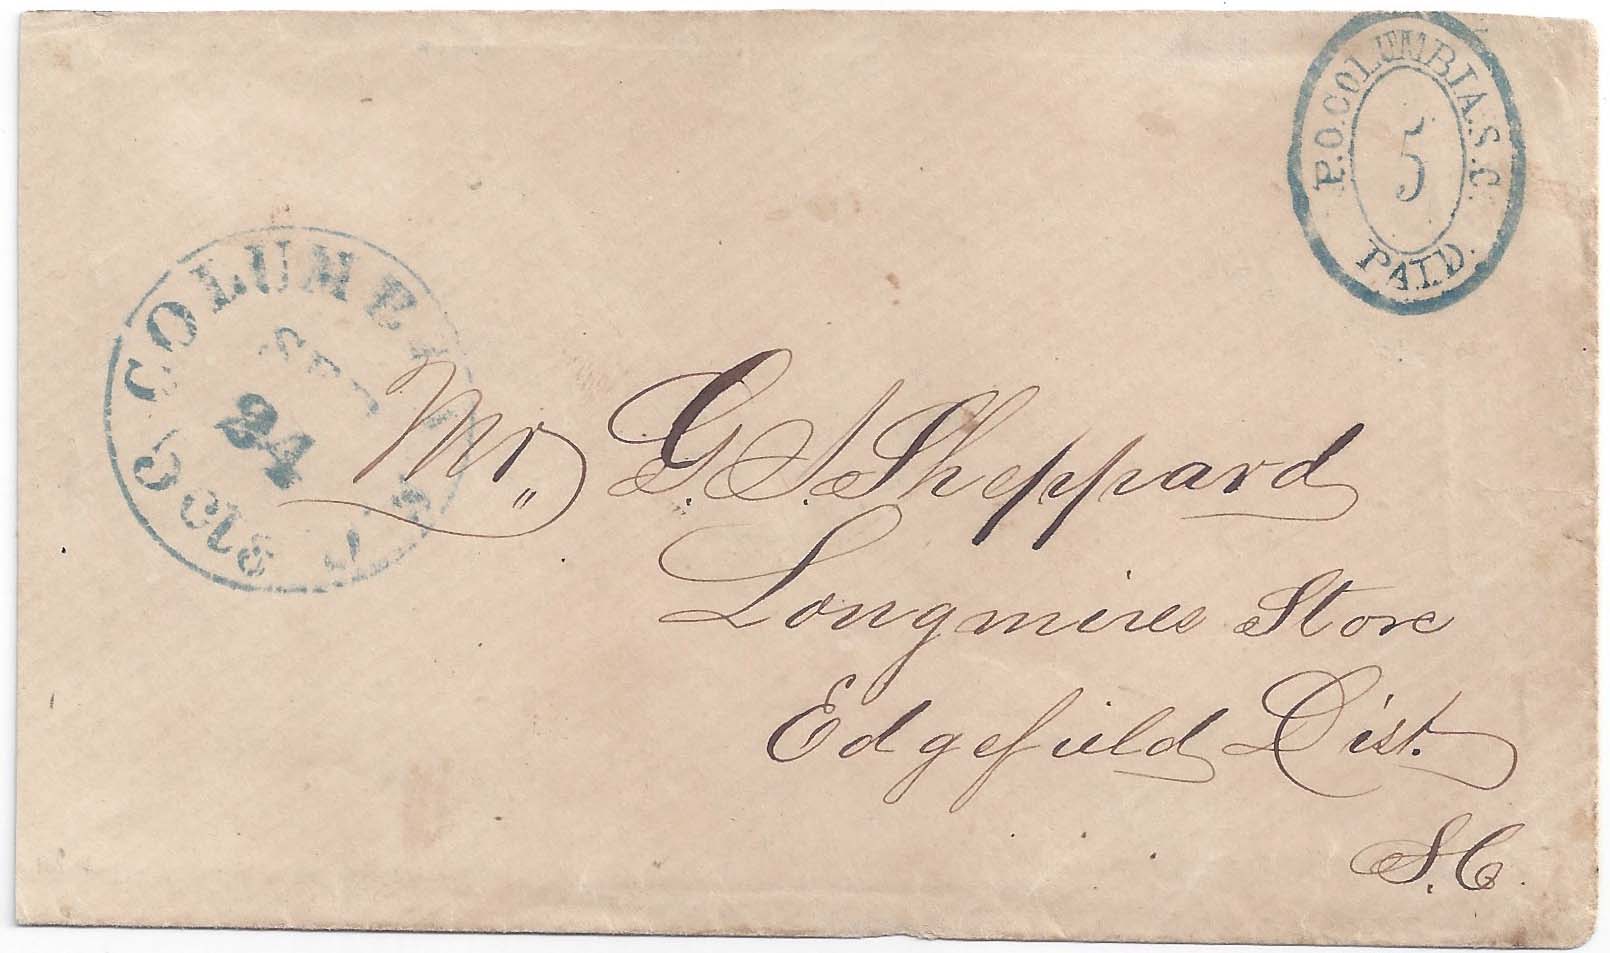 P.O. COLUMBIA. S.C.
5
PAID.
COLUMBIA
SEP
24
S.C.
5 cts
Mr,, G. S. Sheppard
Longmires Store
Edgefield Dist.
S.C.